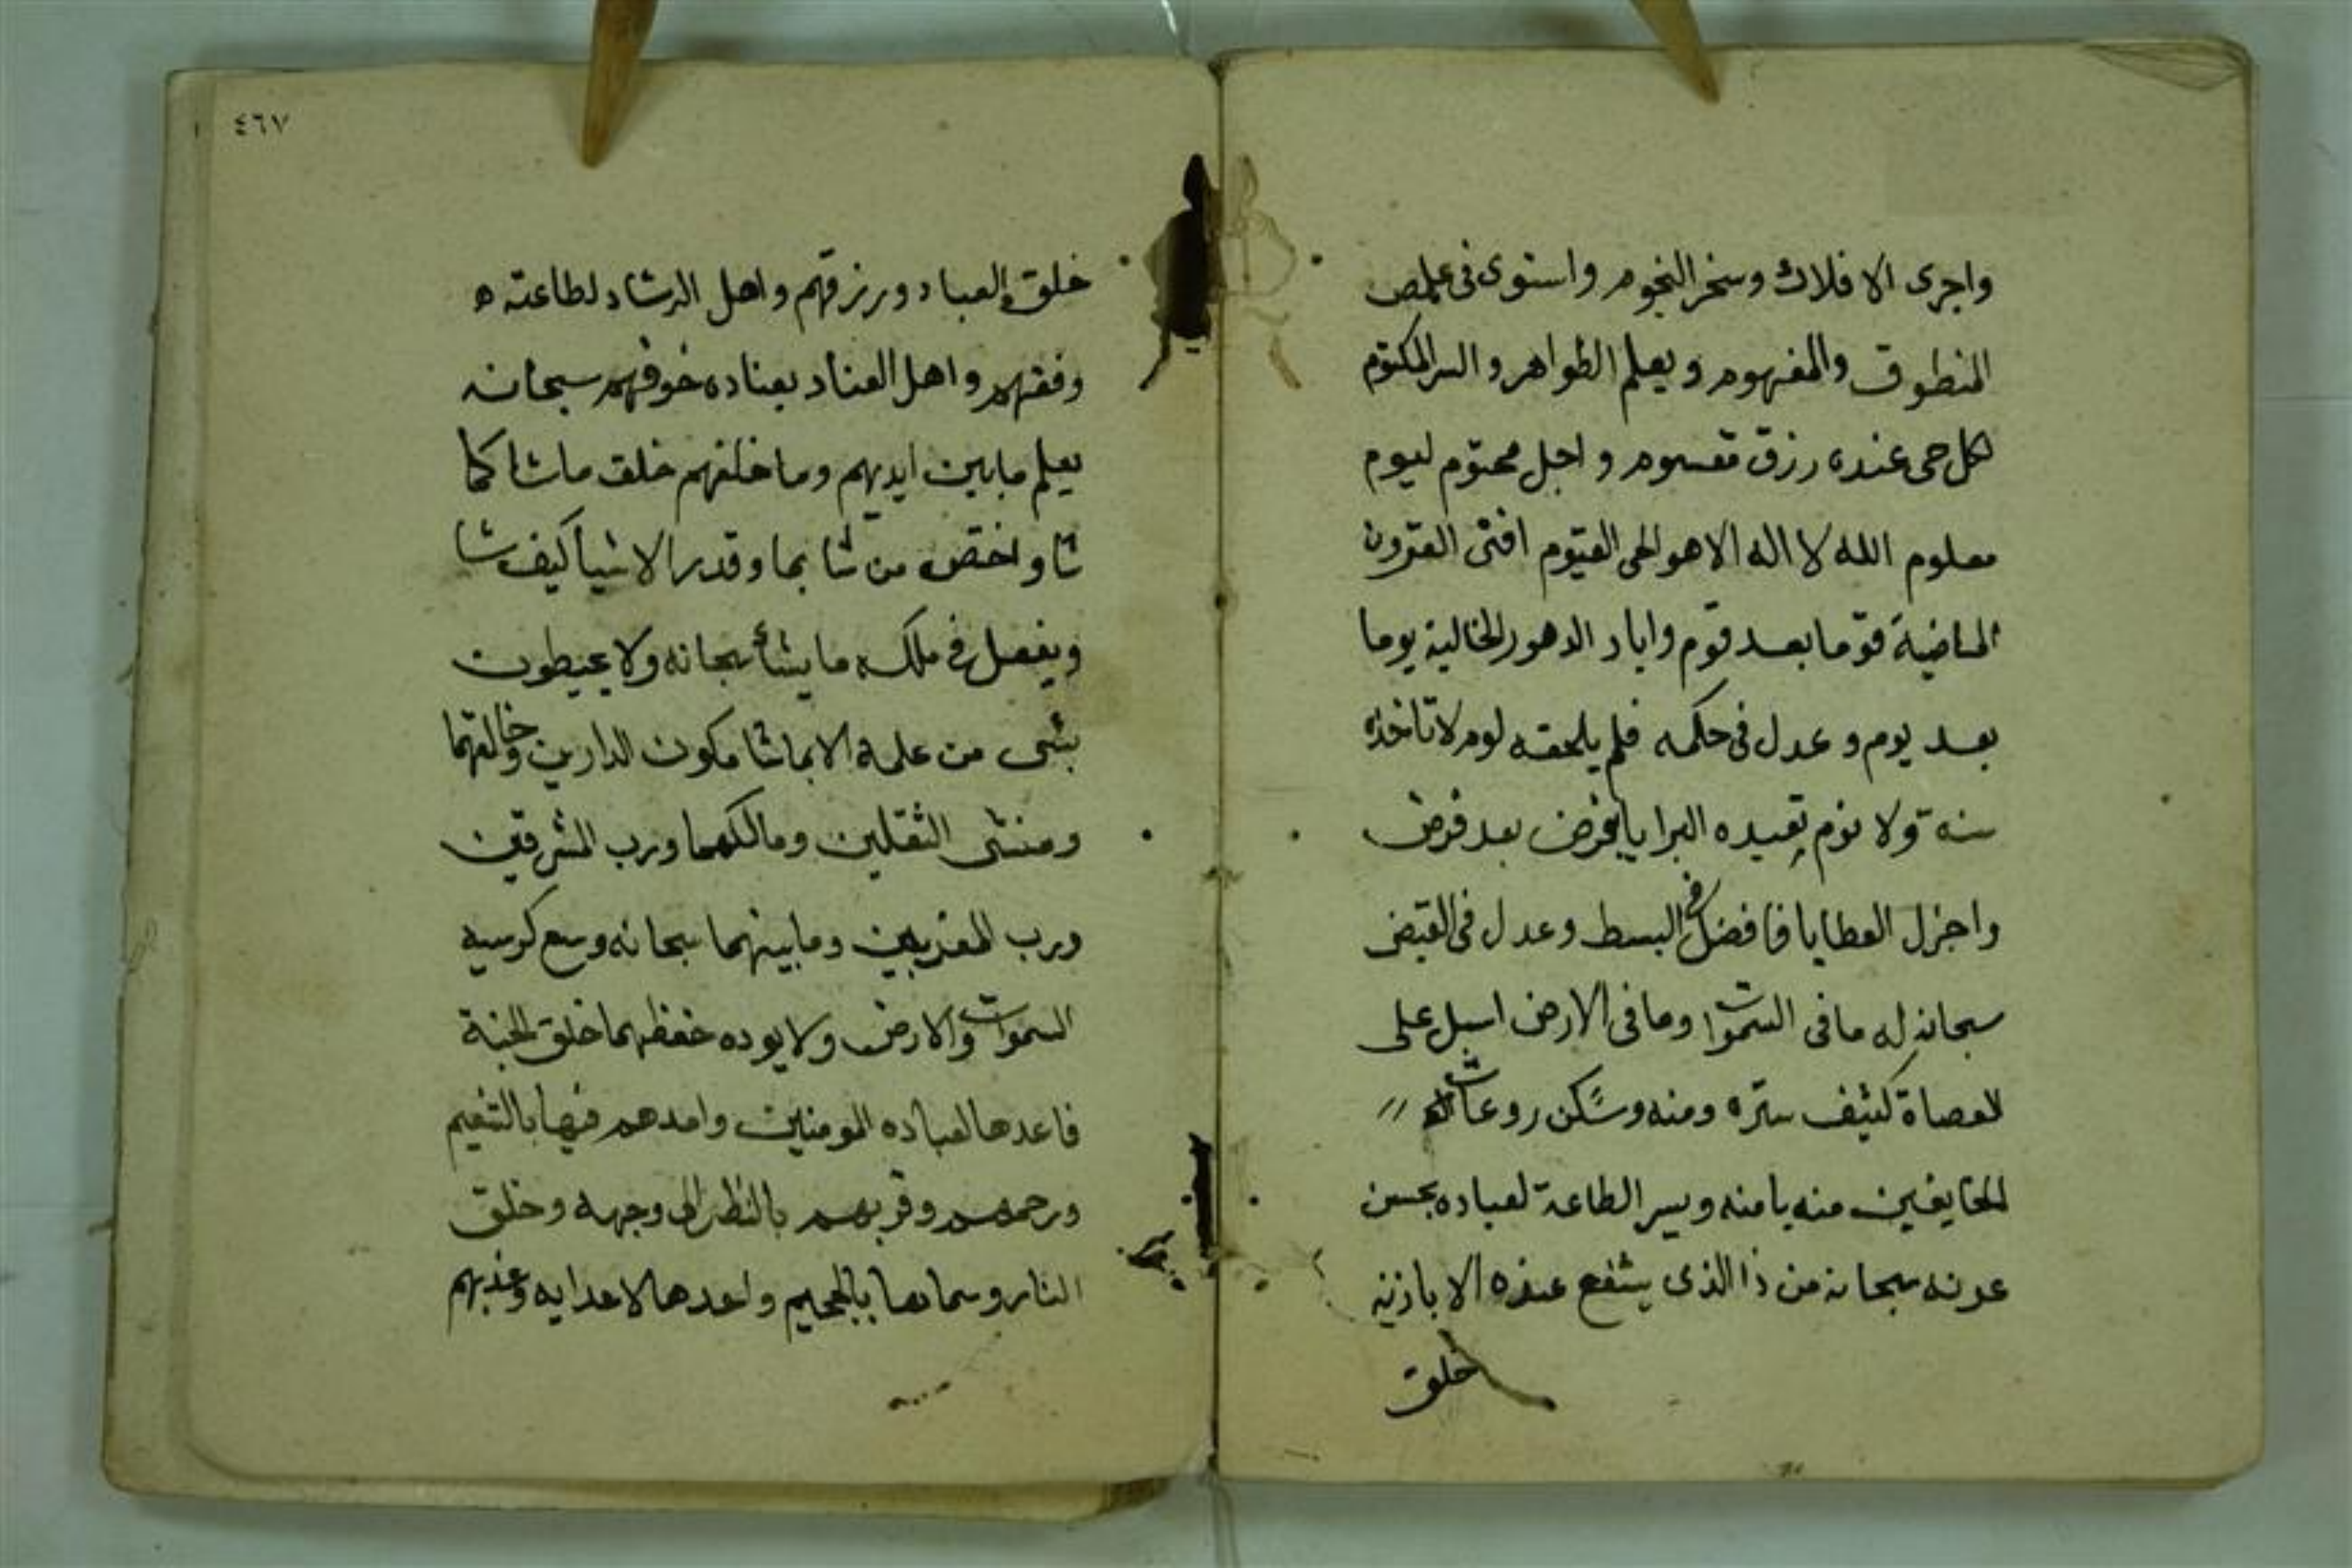 واجرى الافلاك وسخر النجوم واستوى فى علمه
المنطوق والمفهوم ويعلم الظواهر والسر المكتوم
لكل حى عنده رزق مقسوم واجل محتوم ليوم
معلوم الله لا اله الا هو الحى القيوم افنى القرون
الماضية قوما بعد قوم واباد الدهور الخالية يوما
بعد يوم وعدل فى حكمه فلم يلحقه لوم لا تاخذه
سنة ولا نوم تعبده البرايا بفرض بعد فرض
واجزل العطايا فافضل فى البسط وعدل فى القبض
سبحانه له ما فى السموات وما فى الارض اسبل على
العصاة كثيف ستره ومنه وسكن روعات
الخايفين منه بامنه ويسر الطاعة لعباده بحسن
عونه سبحانه من ذا الذى يشفع عنده الا باذنه
خلق
٤٦٧
خلق العباد ورزقهم واهل الرشاد لطاعته
وفقهم واهل العناد بعناده خوفهم سبحانه
يعلم ما بين ايديهم وما خلفهم خلق ما شا كما
شا واختص من شا بما وقدر الاشيا كيف شا
ويفعل فى ملكه ما يشأ سبحانه ولا يحيطون
بشى من علمه الا بما شا مكون الدارين وخالقهما
ومنشى الثقلين ومالكهما ورب المشرقين
ورب المغربين وما بينهما سبحانه وسع كرسيه
السموات والارض ولا يوده حفظهما خلق الجنة
فاعدها لعباده المومنين وامدهم فيها بالنعيم
ورحمهم وقربهم بالنظر الى وجهه وخلق
النار وسماها بالجحيم واعدها لاعدايه وعذبهم